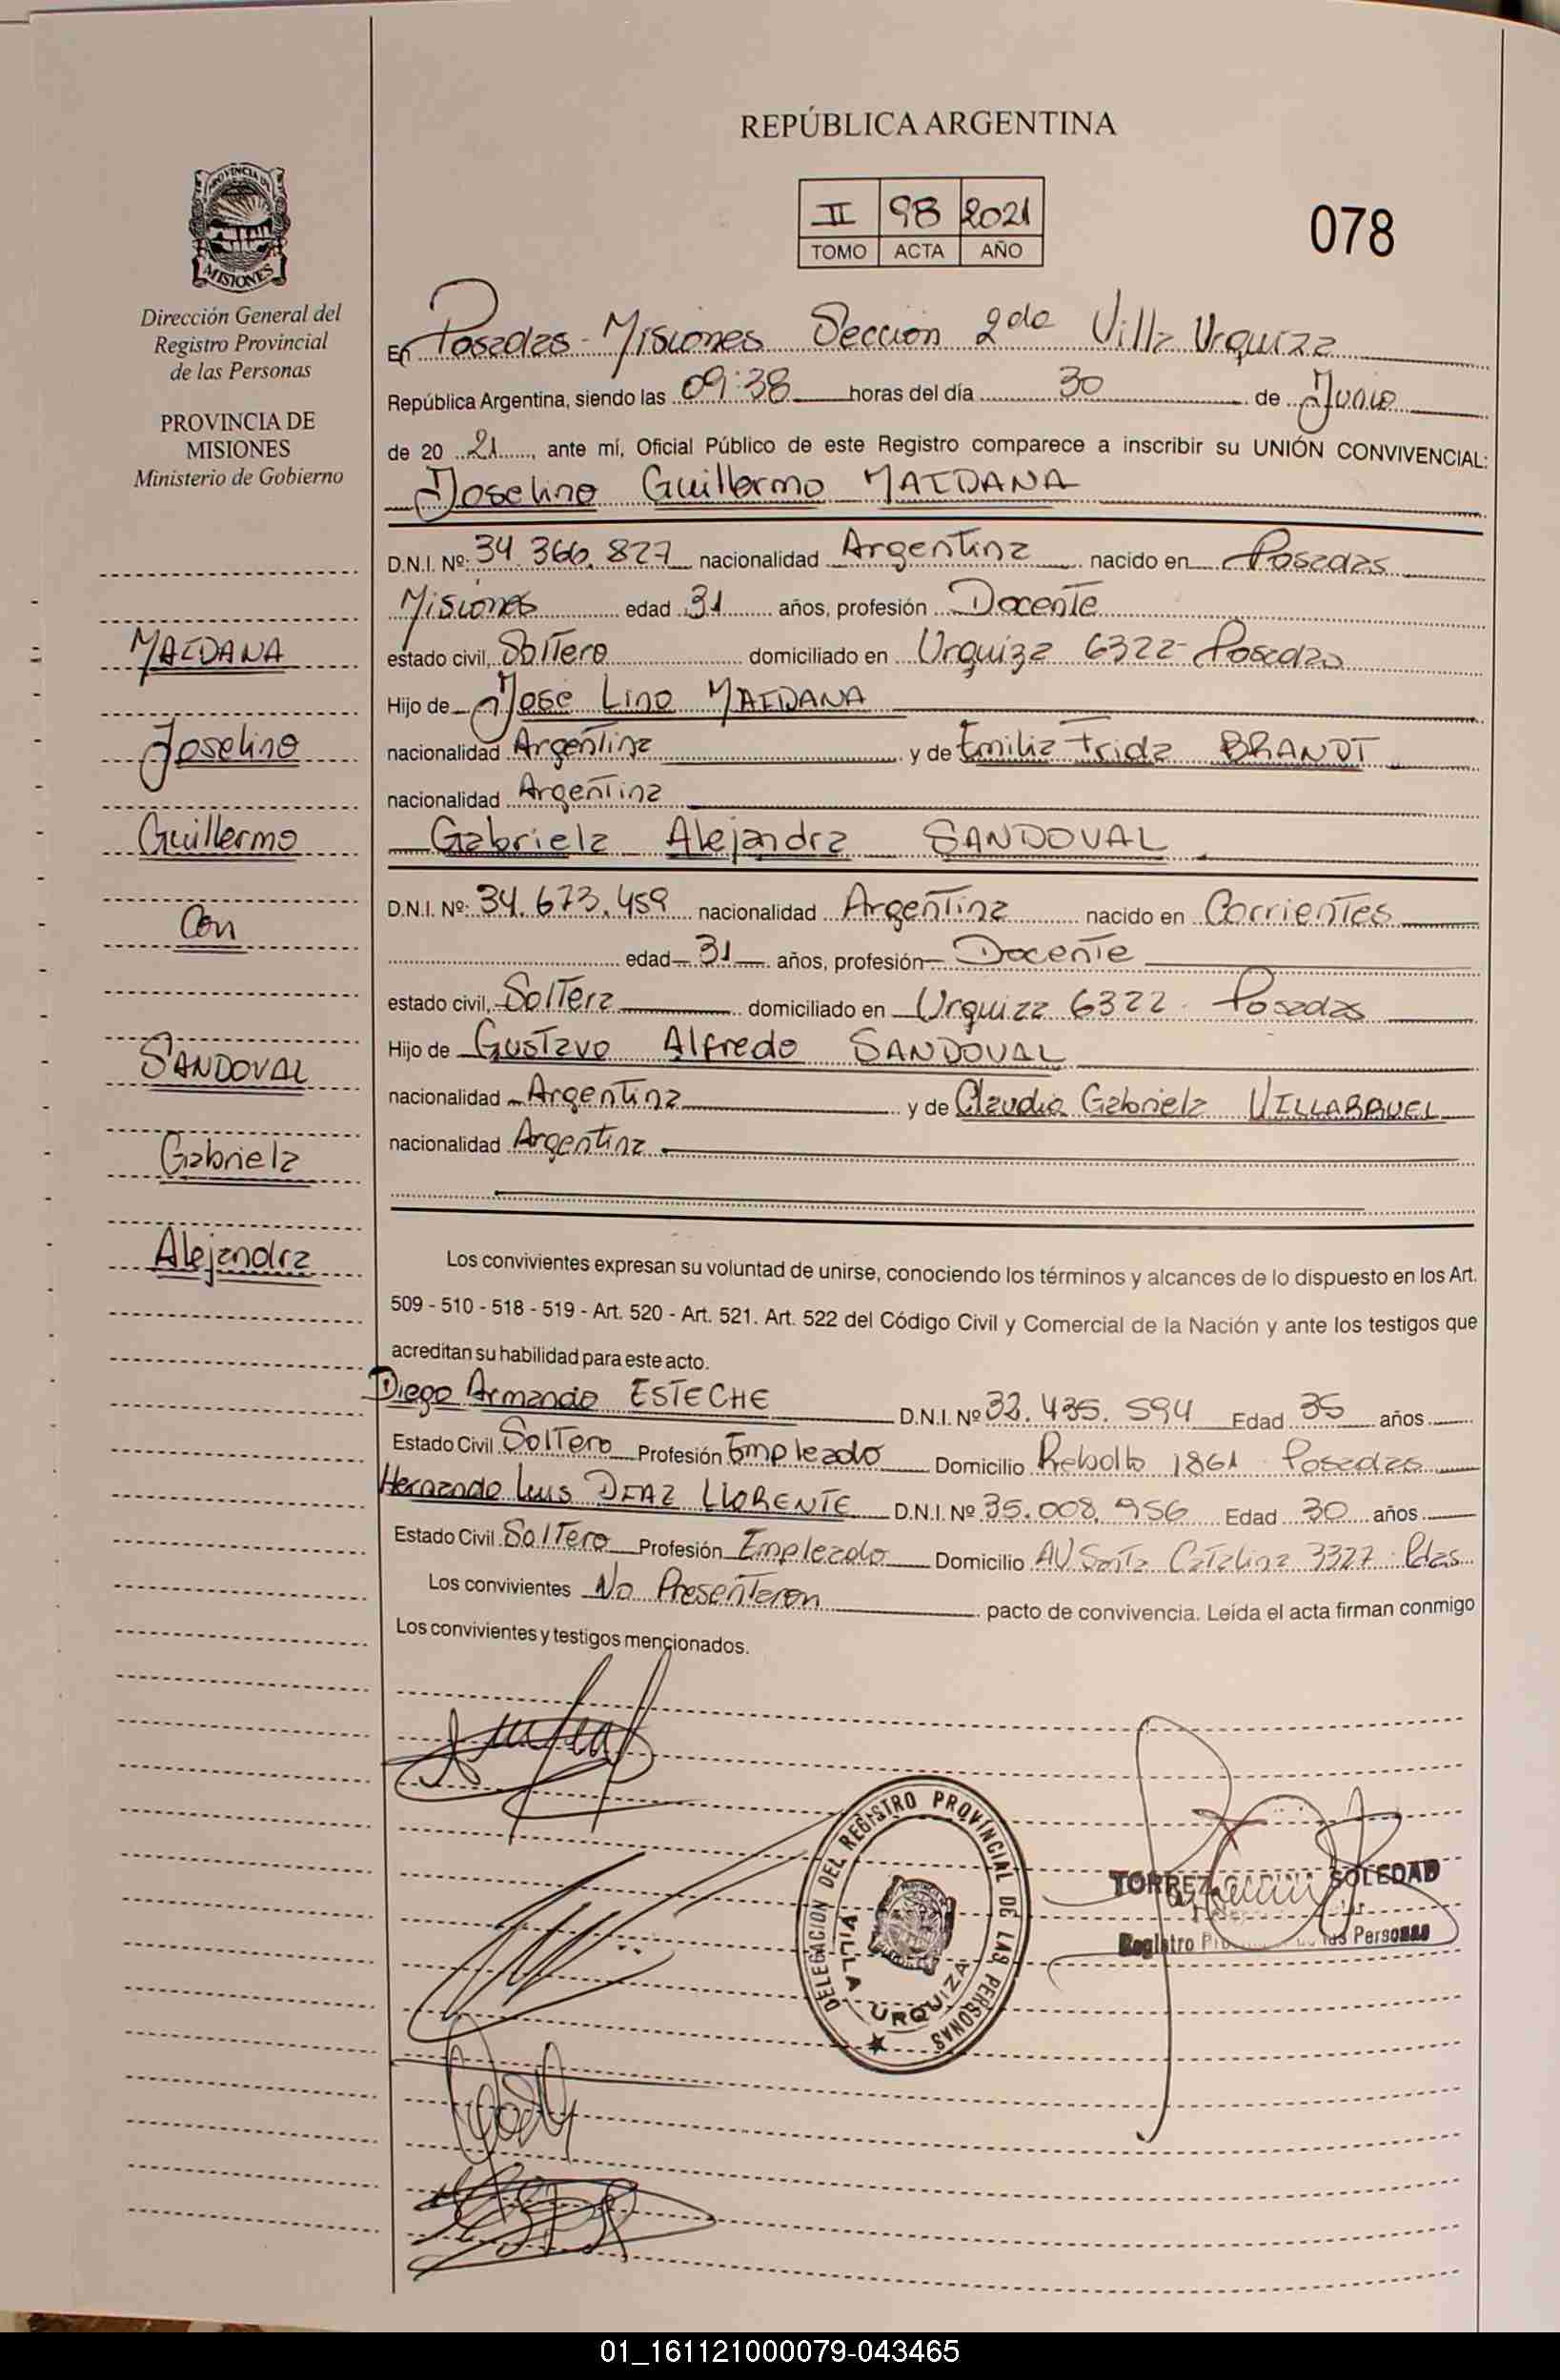 REPÚBLICA ARGENTINA
II 98 2021
TOMO ACTA AÑO
078
PROVINCIA DE
MISIONES
Dirección General del
Registro Provincial
de las Personas
PROVINCIA DE
MISIONES
Ministerio de Gobierno
MAIDANA
Joselino
Guillermo
Con
SANDOVAL
Gabriela
Alejandra
En Posadas - Misiones Seccion 2da Villa Urquiza
República Argentina, siendo las 09:38 horas del día 30 de Junio
de 20 21, ante mí, Oficial Público de este Registro comparece a inscribir su UNIÓN CONVIVENCIAL:
Joselino Guillermo MAIDANA
D.N.I. Nº: 34.366.827 nacionalidad Argentina nacido en Posadas
Misiones edad 31 años, profesión Docente
estado civil, Soltero domiciliado en Urquiza 6322 - Posadas
Hijo de Jose Lino MAIDANA
nacionalidad Argentina y de Emilia Frida BRANDT
nacionalidad Argentina
Gabriela Alejandra SANDOVAL
D.N.I. Nº: 34.673.459 nacionalidad Argentina nacido en Corrientes
edad 31 años, profesión Docente
estado civil, Soltera domiciliado en Urquiza 6322 - Posadas
Hijo de Gustavo Alfredo SANDOVAL
nacionalidad Argentina y de Claudia Gabriela VILLARRUEL
nacionalidad Argentina
Los convivientes expresan su voluntad de unirse, conociendo los términos y alcances de lo dispuesto en los Art.
509 - 510 - 518 - 519 - Art. 520 - Art. 521. Art. 522 del Código Civil y Comercial de la Nación y ante los testigos que
acreditan su habilidad para este acto.
Diego Armando ESTECHE D.N.I. Nº 32.435.594 Edad 35 años
Estado Civil Soltero Profesión Empleado Domicilio Rebollo 1861 - Posadas
Hernando Luis DIAZ LLORENTE D.N.I. Nº 35.008.956 Edad 30 años
Estado Civil Soltero Profesión Empleado Domicilio AV Santa Catalina 3327 - Pdas
Los convivientes No Presentaron pacto de convivencia. Leída el acta firman conmigo
Los convivientes y testigos mencionados.
DELEGACION DEL REGISTRO PROVINCIAL DE LAS PERSONAS
VILLA URQUIZA
TORREZ SOLEDAD
Registro las Personas
01_161121000079-043465